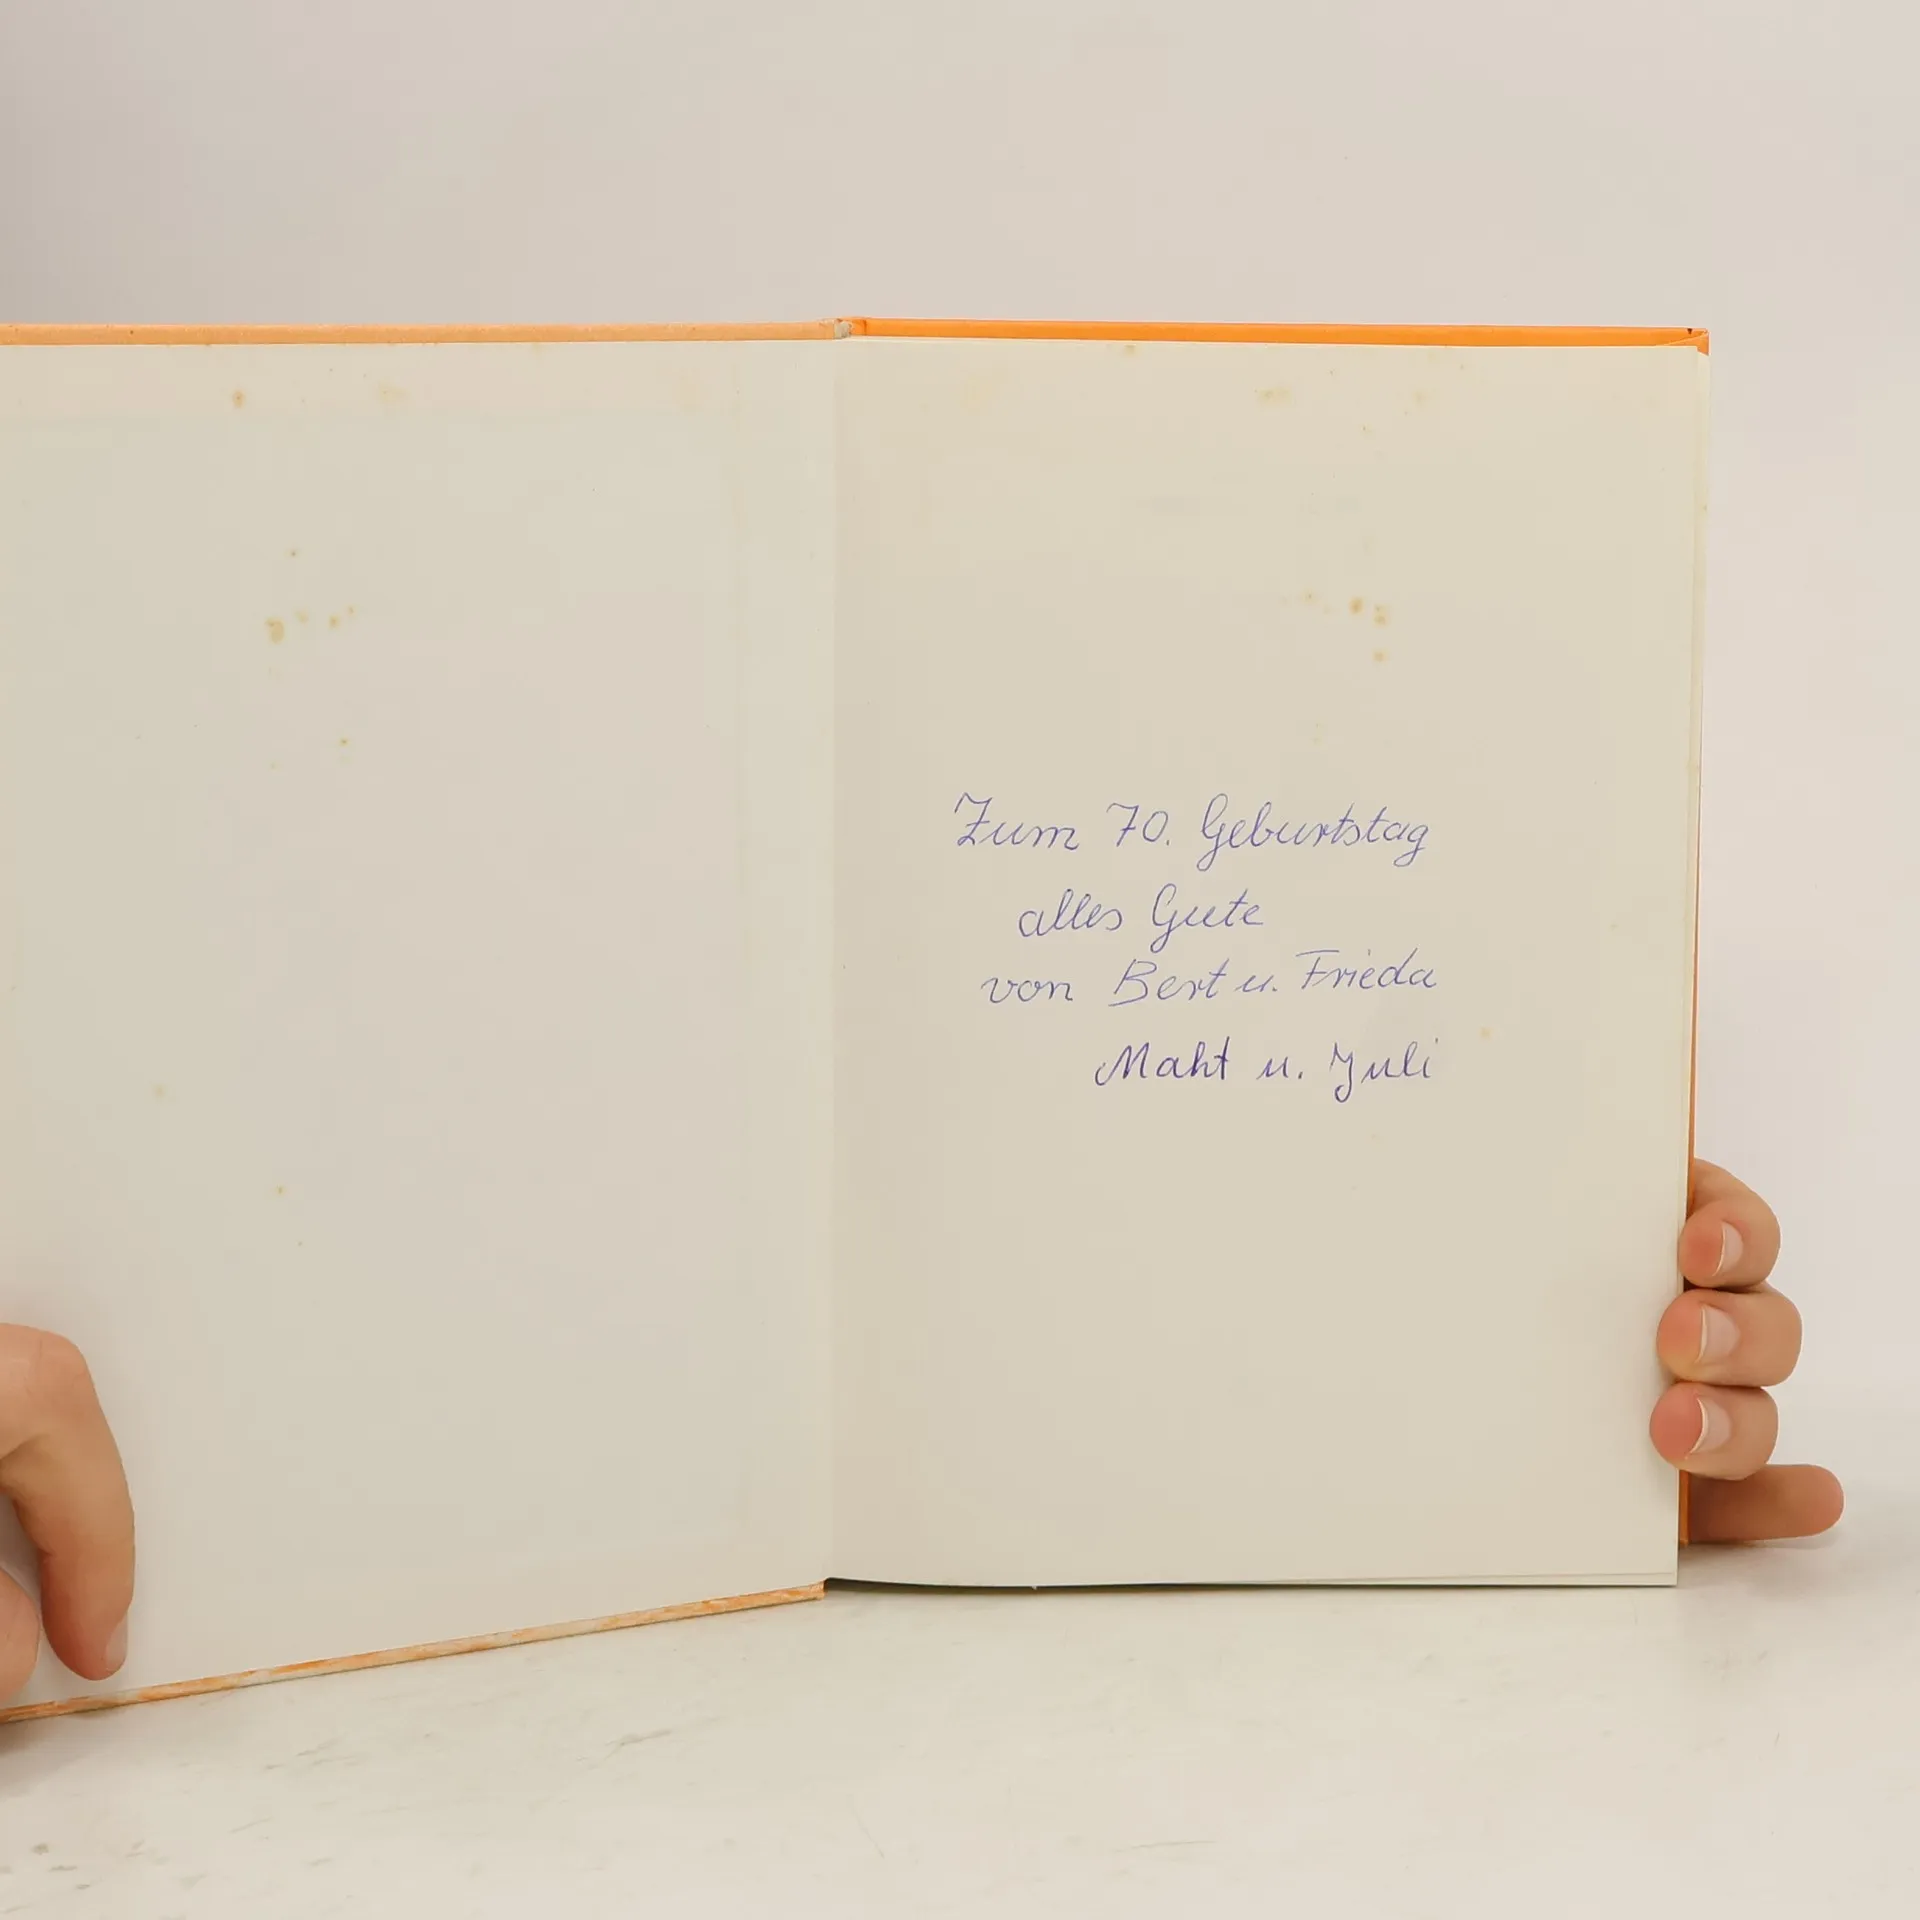 Zum 70. Geburtstag
alles Gute
von Bert u. Frieda
Maht u. Juli